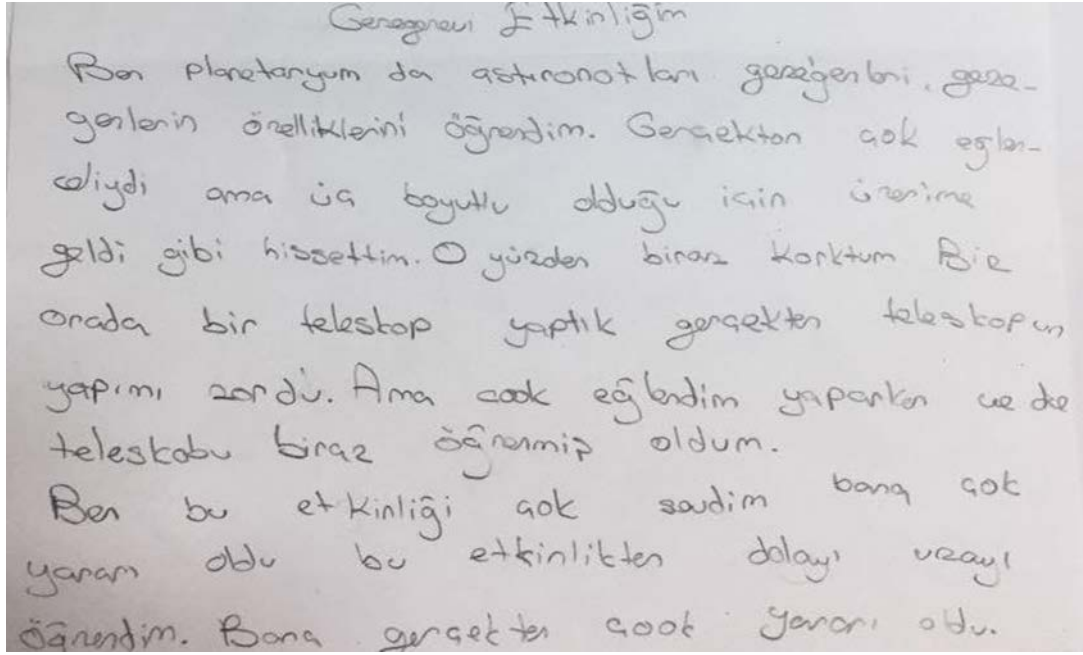 Gezegenevi Etkinliğim
Ben planetaryum da astıronotları gezeğenleri, geze-
genlerin özelliklerini öğrendim. Gerçekten çok eğlen-
celiydi ama üç boyutlu olduğu için üzerime
geldi gibi hissettim. O yüzden biraz korktum Biz
orada bir teleskop yaptık gerçekten teleskopun
yapımı zordu. Ama çook eğlendim yaparken ve de
teleskobu biraz öğrenmiş oldum.
Ben bu etkinliği çok sevdim bana çok
yararı oldu bu etkinlikten dolayı uzayı
öğrendim. Bana gerçekten çook yararı oldu.